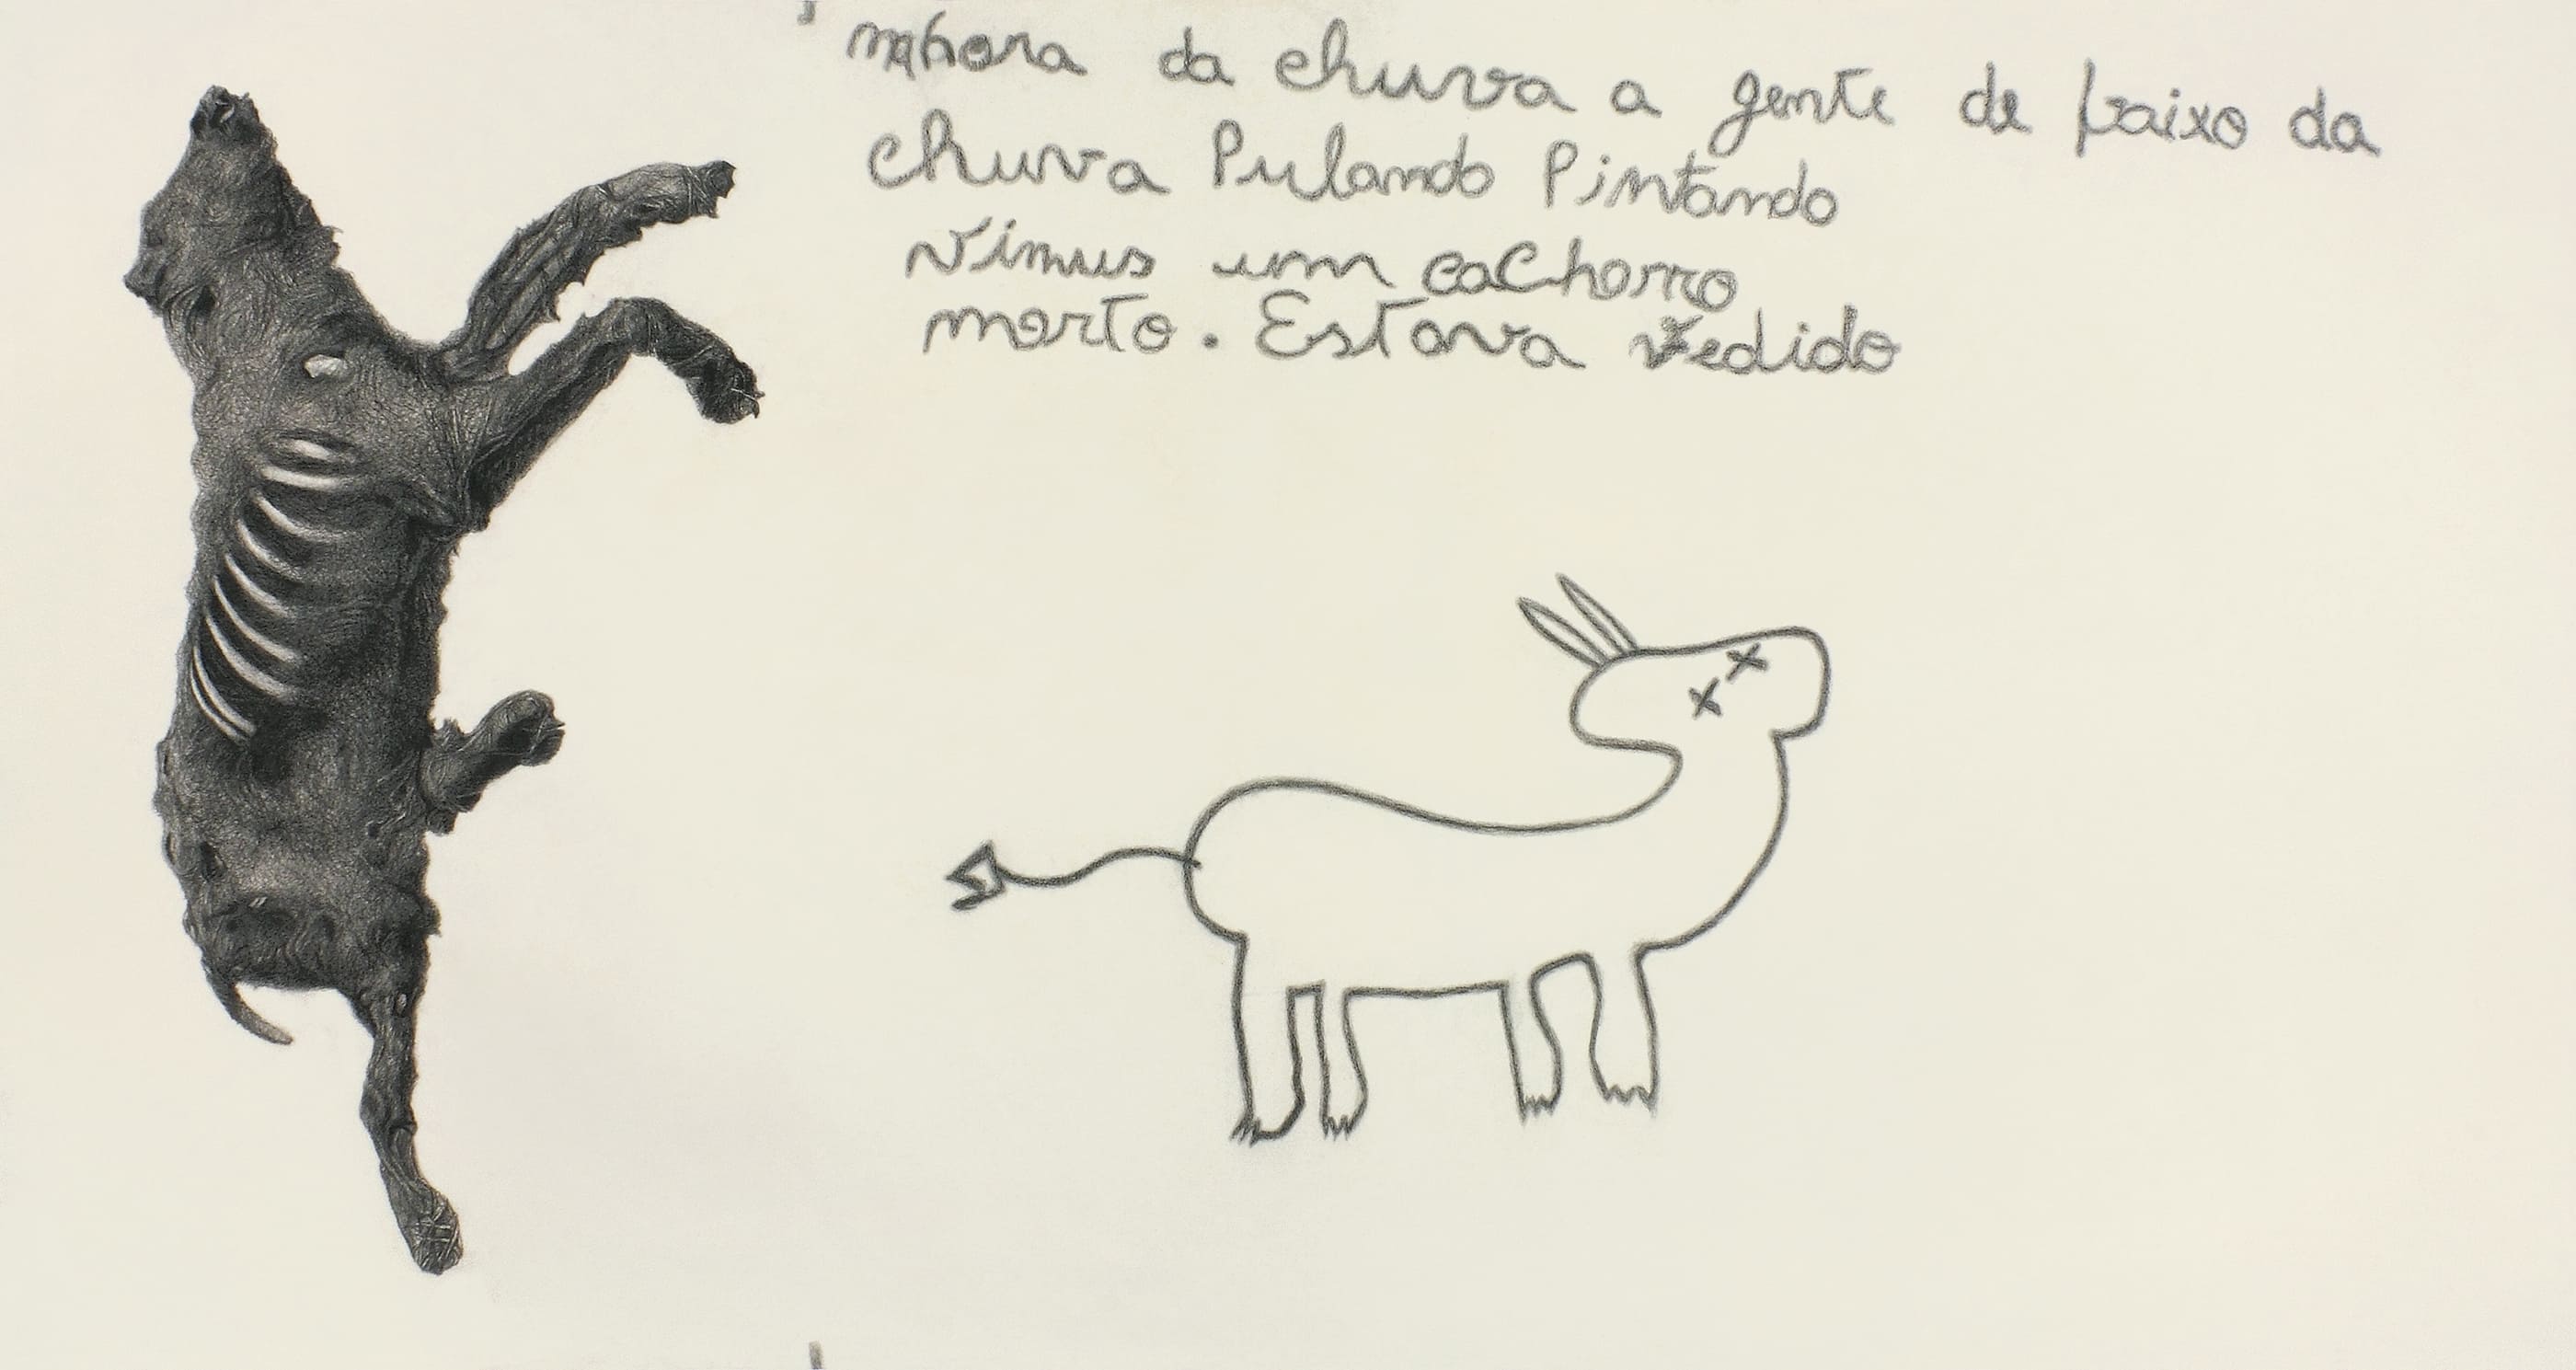 nahora da chuva a gente de baixo da
chuva Pulando Pintando
Vimus um caChorro
morto. Estava fedido